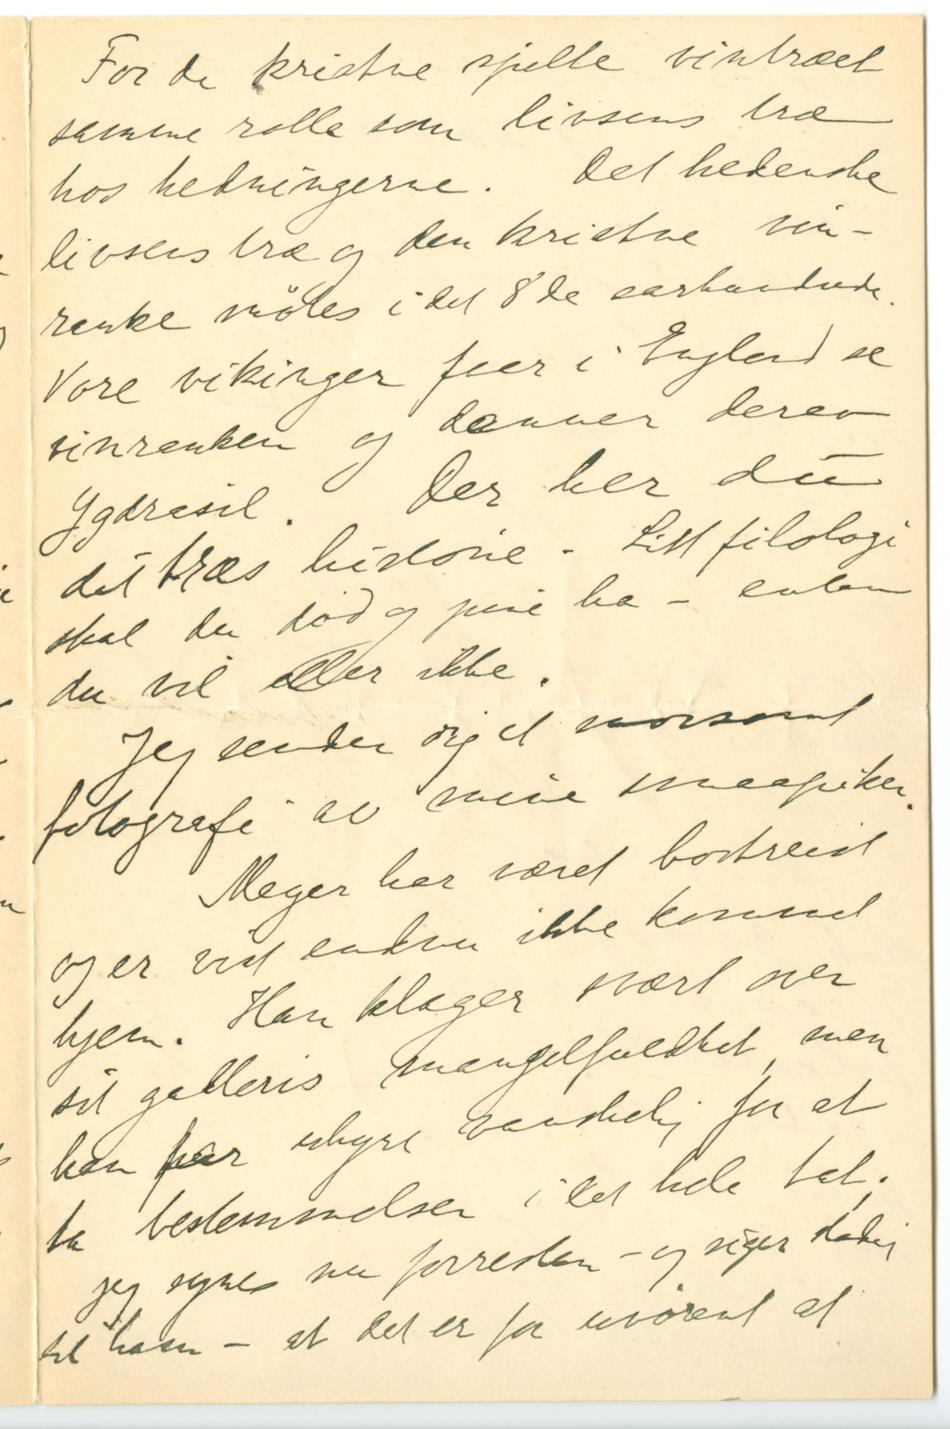 For de kristne spilte vintræet
samme rolle som livsens træ
hos hedningerne. Det hedenske
livsens træ og den kristne vin-
ranke møtes i det 8'de aarhundrede.
Vore vikinger faar i England se
vinranken og danner derav
Ygdrasil. Der har du
dit træs historie - Litt filologi
skal du død og pine ha - enten
du vil eller ikke.
Jeg sender dig et morsomt
fotografi av mine smaapiker.
Meyer har været bortreist
og er vist endnu ikke kommet
hjem. Han klager svært over
sit galleris mangelfuldhet, men
han har uhyre vanskelig for at
ta bestemmelser i det hele tat.
jeg synes nu forresten - og siger stadig
til ham - at det er for uvørent at